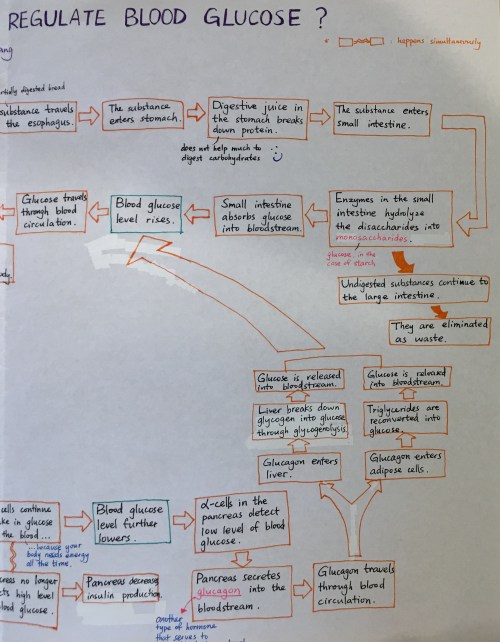 REGULATE BLOOD GLUCOSE ?
: happens simultaneously
digested bread
substance travels
the esophagus.
The substance
enters stomach.
Digestive juice in
the stomach breaks
down protein.
does not help much to
digest carbohydrates
The substance enters
small intestine.
Glucose travels
through blood
circulation.
Blood glucose
level rises.
Small intestine
absorbs glucose
into bloodstream.
Enzymes in the small
intestine hydrolyze
the disaccharides into
monosaccharides.
glucose, in the
case of starch
Undigested substances continue to
the large intestine.
They are eliminated
as waste.
Glucose is released
into bloodstream.
Glucose is released
into bloodstream.
Liver breaks down
glycogen into glucose
through glycogenolysis.
Triglycerides are
reconverted into
glucose.
Glucagon enters
liver.
Glucagon enters
adipose cells.
cells continue
in glucose
the blood...
...because your
body needs energy
all the time.
Blood glucose
level further
lowers.
α-cells in the
pancreas detect
low level of blood
glucose.
no longer
high level
glucose.
Pancreas decreases
insulin production.
Pancreas secretes
glucagon into the
bloodstream.
Glucagon travels
through blood
circulation.
another
type of hormone
that serves to